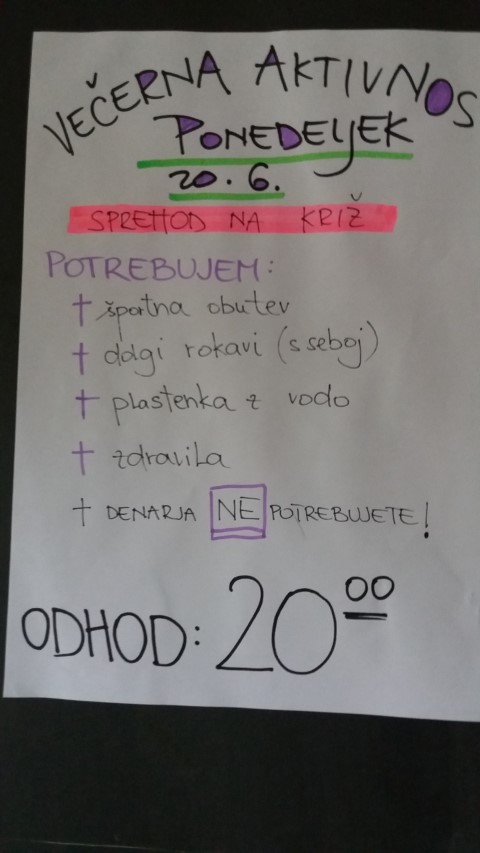 VEČERNA AKTIVNOS
PONEDELJEK
20. 6.
SPREHOD NA KRIŽ
POTREBUJEM:
† športna obutev
† dolgi rokavi (s seboj)
† plastenka z vodo
† zdravila
† DENARJA NE POTREBUJETE!
ODHOD: 20⁰⁰